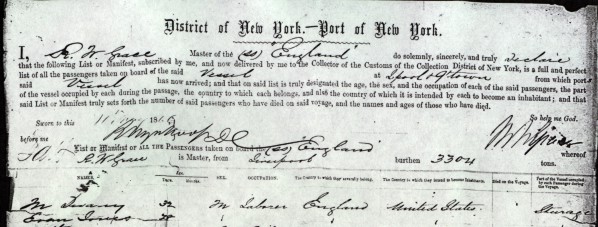 District of New York.—Port of New York.
I, R W Grace Master of the (SS) "England" do solemnly, sincerely, and truly declare
that the following List or Manifest, subscribed by me, and now delivered by me to the Collector of the Customs of the Collection District of New York, is a full and perfect
list of all the passengers taken on board of the said Vessel at L'pool & Q'town from which port
said Vessel has now arrived; and that on said list is truly designated the age, the sex, and the occupation of each of said passengers, the part
of the vessel occupied by each during the passage, the country to which each belongs, and also the country of which it is intended by each to become an inhabitant; and that
said List or Manifest truly sets forth the number of said passengers who have died on said voyage, and the names and ages of those who have died.
So help me God.
Sworn to this 187
before me
List or Manifest of ALL THE PASSENGERS taken on board the (SS) England whereof
R. W. Grace is Master, from Liverpool burthen 3304 tons.
NAMES. AGE. SEX. OCCUPATION. The Country to which they severally belong. The Country to which they intend to become Inhabitants. Died on the Voyage. Part of the Vessel occupied by each Passenger during the Voyage.
Years. Months.
M 32 M Laborer England United States Steerage
Evan Jones